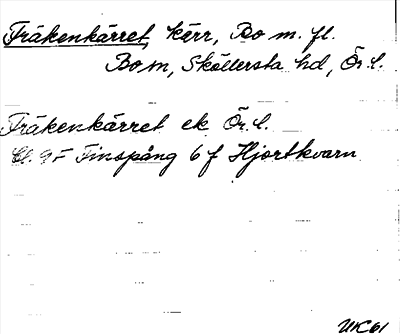 Fräkenkärret, kärr, Bo m. fl.
Bo sn, Sköllersta hd, Ör. l.
Fräkenkärret ek Ör. l.
9F Finspång 6 f Hjortkvarn
UK 61